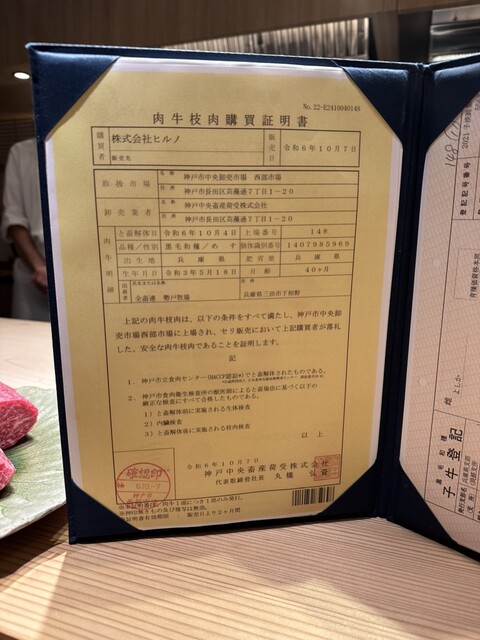 No.22-E2410040148
肉牛枝肉購買証明書
購買者 株式会社ヒルノ 販売日 令和6年10月7日
販売先
取扱市場 名称 神戸市中央卸売市場 西部市場
住所 神戸市長田区苅藻通7丁目1-20
卸売業者 名称 神戸中央畜産荷受株式会社
住所 神戸市長田区苅藻通7丁目1-20
肉牛明細 と畜解体日 令和6年10月4日 上場番号 148
品種/性別 黒毛和種/めす 個体識別番号 1407985969
出生地 兵庫県 肥育地 兵庫県
生年月日 令和3年5月18日 月齢 40ヶ月
出荷者 氏名または名称 住所
全畜連 勢戸牧場 兵庫県三田市下相野
上記の肉牛枝肉は、以下の条件をすべて満たし、神戸市中央卸
売市場西部市場に上場され、セリ販売において上記購買者が落札
した、安全な肉牛枝肉であることを証明します。
記
1. 神戸市立食肉センター(HACCP認証※)でと畜解体されたものである。
2. 神戸市食肉衛生検査所の獣医師によると畜場法に基づく以下の
厳正な検査にすべて合格したものである。
1)と畜解体前に実施される生体検査
2)内臓検査
3)と畜解体後に実施される枝肉検査
以上
令和6年10月7日
神戸中央畜産荷受株式会社
代表取締役社長 丸橋 弘貴
確認印
6.10.-7
※本証明書は、肉牛1頭につき1部のみ発行。
※押印無きもの及び複写は無効。
※証明書有効期限 : 販売日より2ヶ月間
148
2021
登記記号番号
黒毛和種
子牛登記